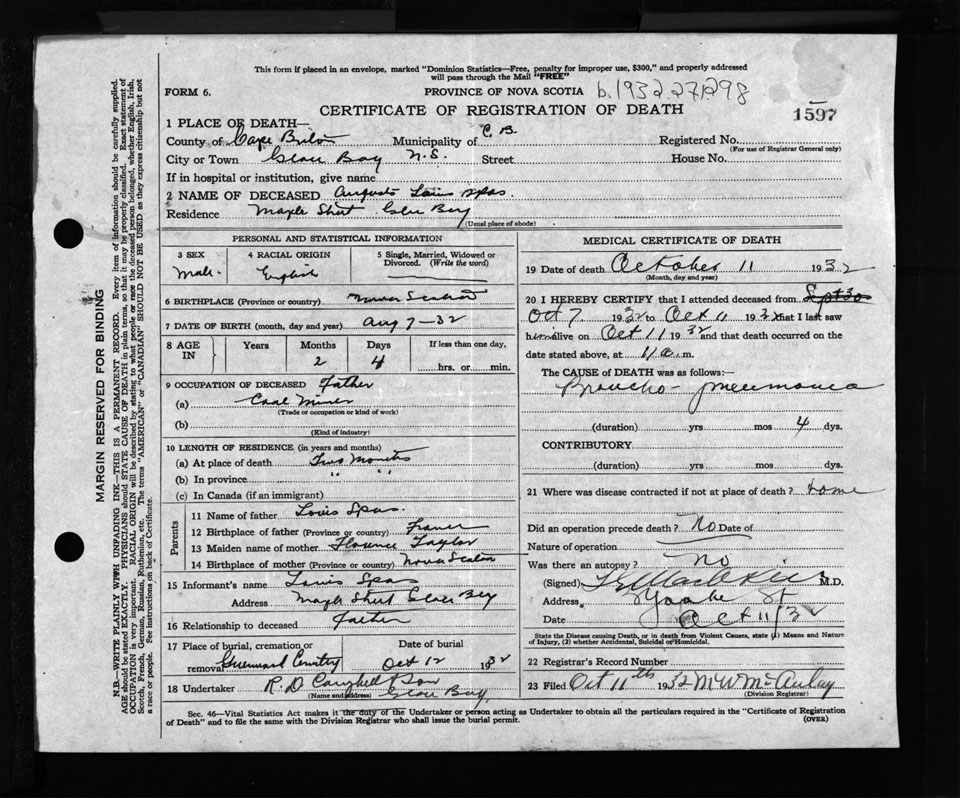 This form if placed in an envelope, marked "Dominion Statistics—Free, penalty for improper use, $300," and properly addressed
will pass through the Mail "FREE"
FORM 6. PROVINCE OF NOVA SCOTIA b. 1932 271298
CERTIFICATE OF REGISTRATION OF DEATH 1597
1 PLACE OF DEATH—
County of Cape Breton Municipality of C. B. Registered No.
(For use of Registrar General only)
City or Town Glace Bay N.S. Street House No.
If in hospital or institution, give name
2 NAME OF DECEASED Louis Spas.
Residence Maple Street Glace Bay
(Usual place of abode)
PERSONAL AND STATISTICAL INFORMATION
3 SEX 4 RACIAL ORIGIN 5 Single, Married, Widowed or
Divorced. (Write the word)
Male. English
6 BIRTHPLACE (Province or country) Nova Scotia
7 DATE OF BIRTH (month, day and year) Aug 7 - 32
8 AGE IN Years Months Days If less than one day,
2 4 hrs. or min.
9 OCCUPATION OF DECEASED Father
(a) Coal Miner
(Trade or occupation or kind of work)
(b)
(Kind of industry)
10 LENGTH OF RESIDENCE (in years and months)
(a) At place of death Two Months
(b) In province " "
(c) In Canada (if an immigrant)
Parents
11 Name of father Louis Spas.
12 Birthplace of father (Province or country) France
13 Maiden name of mother Florence Taylor
14 Birthplace of mother (Province or country) Nova Scotia
15 Informant's name Louis Spas
Address Maple Street Glace Bay
16 Relationship to deceased Father
17 Place of burial, cremation or Date of burial
removal Greenwood Cemetery Oct 12 1932
18 Undertaker R. D. Campbell & Son
(Name and address) Glace Bay
MEDICAL CERTIFICATE OF DEATH
19 Date of death October 11 1932
(Month, day and year)
20 I HEREBY CERTIFY that I attended deceased from Sept 30
Oct 7 1932 to Oct 11 1932 that I last saw
him alive on Oct 11 1932 and that death occurred on the
date stated above, at 11 a. m.
The CAUSE of DEATH was as follows:—
Broncho-pneumonia
(duration) yrs mos 4 dys.
CONTRIBUTORY
(duration) yrs mos dys.
21 Where was disease contracted if not at place of death? home
Did an operation precede death? No Date of
Nature of operation
Was there an autopsy? No
(Signed) M.D.
Address St
Date Oct 11/32
State the Disease causing Death, or in death from Violent Causes, state (1) Means and Nature
of Injury, (2) whether Accidental, Suicidal or Homicidal.
22 Registrar's Record Number
23 Filed Oct 11th 1932 M W McAulay
(Division Registrar)
Sec. 46—Vital Statistics Act makes it the duty of the Undertaker or person acting as Undertaker to obtain all the particulars required in the "Certificate of Registration
of Death" and to file the same with the Division Registrar who shall issue the burial permit.
(OVER)
MARGIN RESERVED FOR BINDING
N.B.—WRITE PLAINLY WITH UNFADING INK—THIS IS A PERMANENT RECORD. Every item of information should be carefully supplied.
AGE should be stated EXACTLY. PHYSICIANS should STATE CAUSE OF DEATH in plain terms, so that it may be properly classified. Exact statement of
OCCUPATION is very important. RACIAL ORIGIN will be described by stating to what people or race the deceased person belonged, whether English, Irish,
Scotch, French, German, Russian, Ruthenian, etc. The terms "AMERICAN" or "CANADIAN" SHOULD NOT BE USED as they express citizenship but not
a race or people. See instructions on back of Certificate.